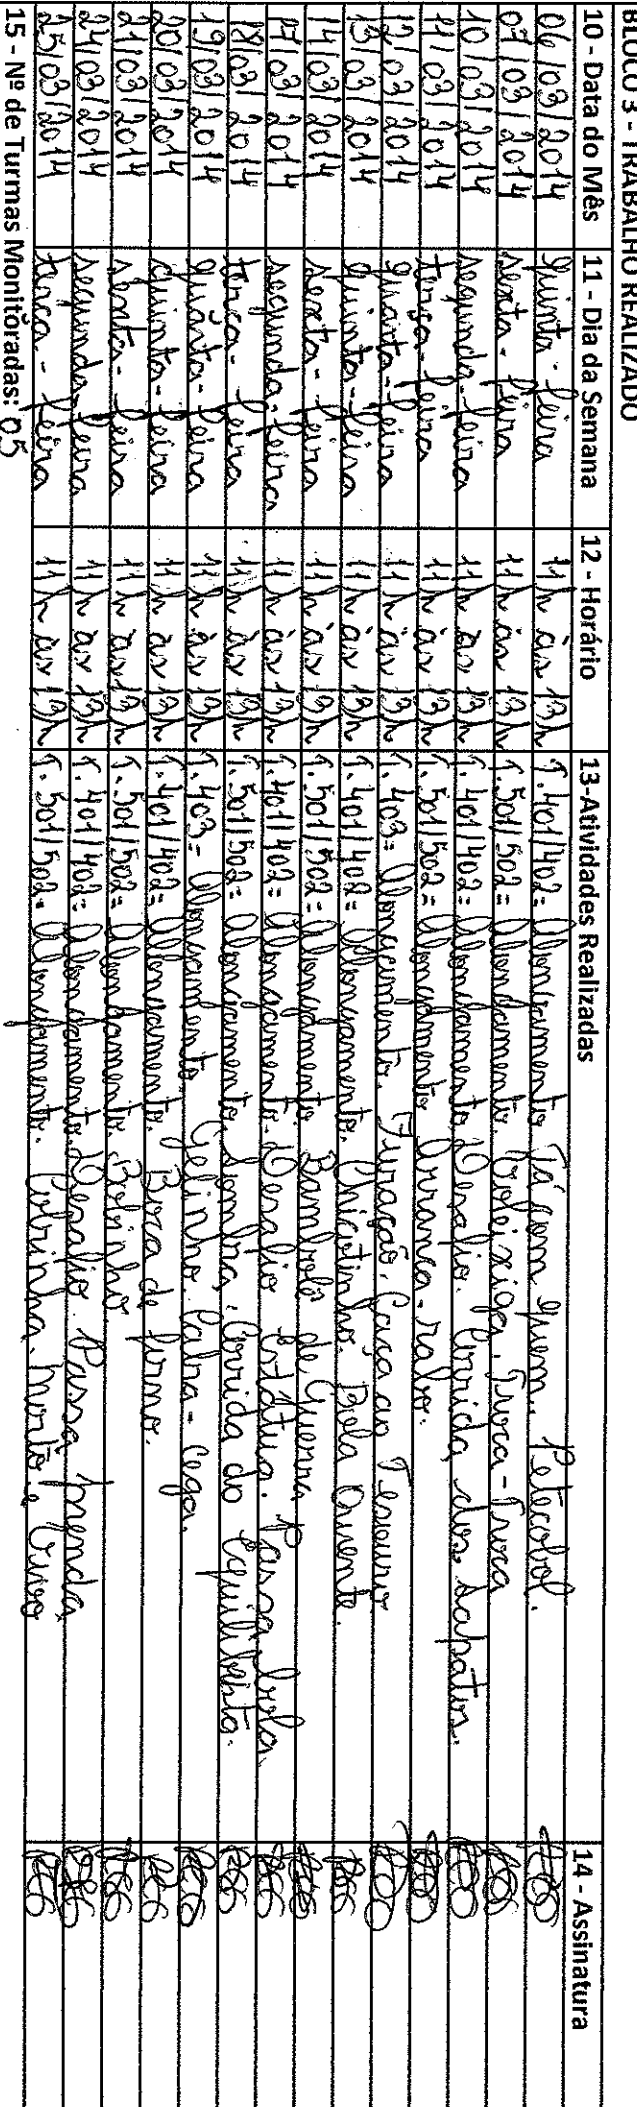 BLOCO 3 - TRABALHO REALIZADO
10 - Data do Mês 11 - Dia da Semana 12 - Horário 13-Atividades Realizadas 14 - Assinatura
06/03/2014 quinta-feira 11h às 13h T.401/402= Alongamento Tá com quem. Petecobol.
07/03/2014 sexta-feira 11h às 13h T.501/502= Alongamento Voleixiga. Troca-Troca
10/03/2014 segunda-feira 11h às 13h T.401/402= Alongamento. Desafio. Corrida dos sapatos.
11/03/2014 terça-feira 11h às 13h T.501/502= Alongamento Arranca-rabo.
12/03/2014 quarta-feira 11h às 13h T.403= Alongamento. Furacão. Caça ao Tesouro
13/03/2014 quinta-feira 11h às 13h T.401/402= Alongamento. Chicotinho. Bola Quente.
14/03/2014 sexta-feira 11h às 13h T.501/502= Alongamento. Bambolê de Guerra
17/03/2014 segunda-feira 11h às 13h T.401/402= Alongamento. Desafio Estátua. Passa bola.
18/03/2014 terça-feira 11h às 13h T.501/502= Alongamento. Sombra. Corrida do Equilibrista.
19/03/2014 quarta-feira 11h às 13h T.403= Alongamento Gelinho. Cabra-cega.
20/03/2014 quinta-feira 11h às 13h T.401/402= Alongamento. Boca de forno.
21/03/2014 sexta-feira 11h às 13h T.501/502= Alongamento. Bobinho.
24/03/2014 segunda-feira 11h às 13h T.401/402= Alongamento. Desafio. Passa prenda.
25/03/2014 terça-feira 11h às 13h T.501/502= Alongamento. Cobrinha. Morto e Vivo
15 - Nº de Turmas Monitoradas: 05